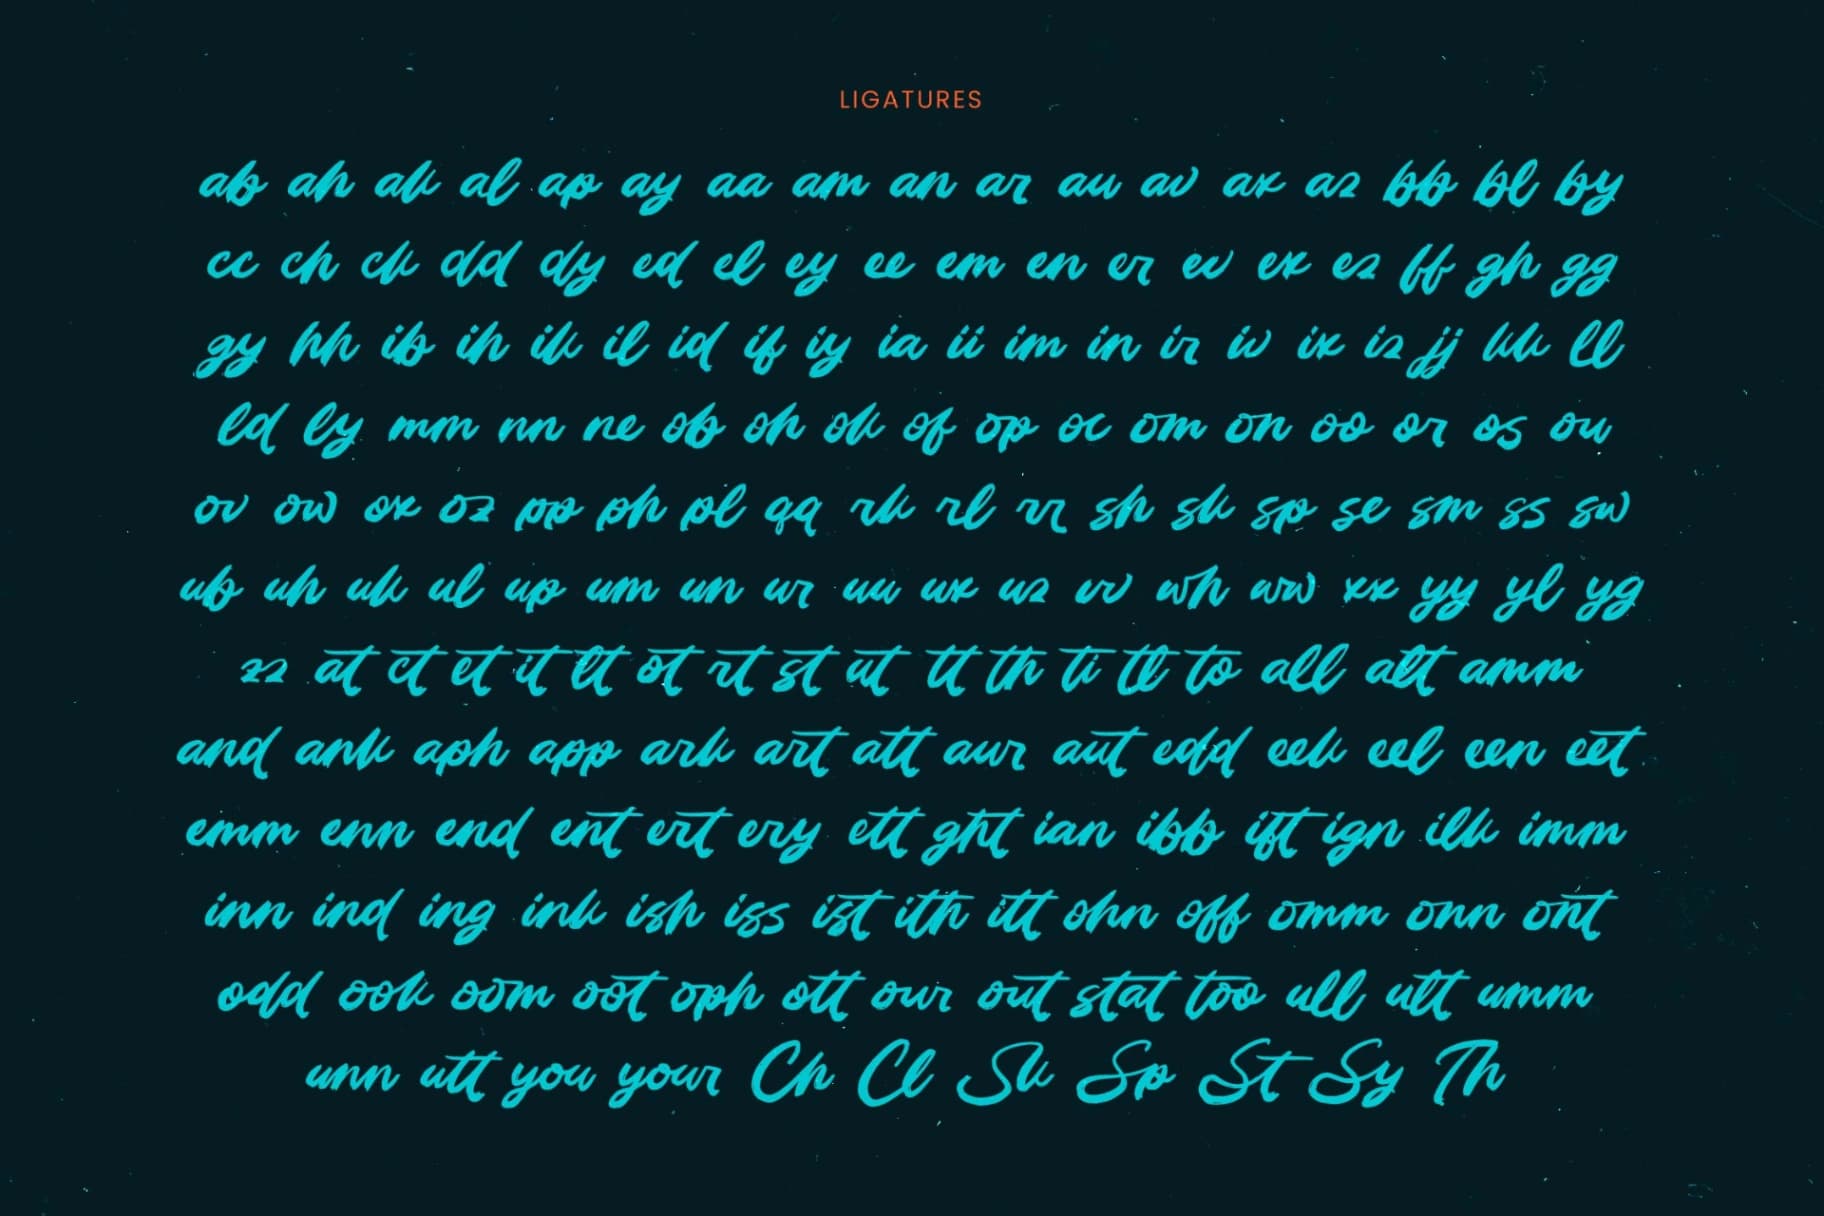 LIGATURES
ab ah ak al ap ay aa am an ar au av ax az bb bl by
cc ch ck dd dy ed el ey ee em en er ev ex ez ff gh gg
gy hh ib ih ik il id if iy ia ii im in ir iv ix iz jj kk ll
ld ly mm nn ne ob oh ok of op oc om on oo or os ou
ov ow ox oz pp ph pl qq rk rl rr sh sk sp se sm ss sw
ub uh uk ul up um un ur uu ux uz vv wh ww xx yy yl yg
zz at ct et it lt ot rt st ut tt th ti tl to all alt amm
and ank aph app ark art att aur aut edd eek eel een eet
emm enn end ent ert ery ett ght ian ibb ift ign ilk imm
inn ind ing ink ish iss ist ith itt ohn off omm onn ont
odd ook oom oot oph ott our out stat too ull ult umm
unn utt you your Ch Cl Sk Sp St Sy Th